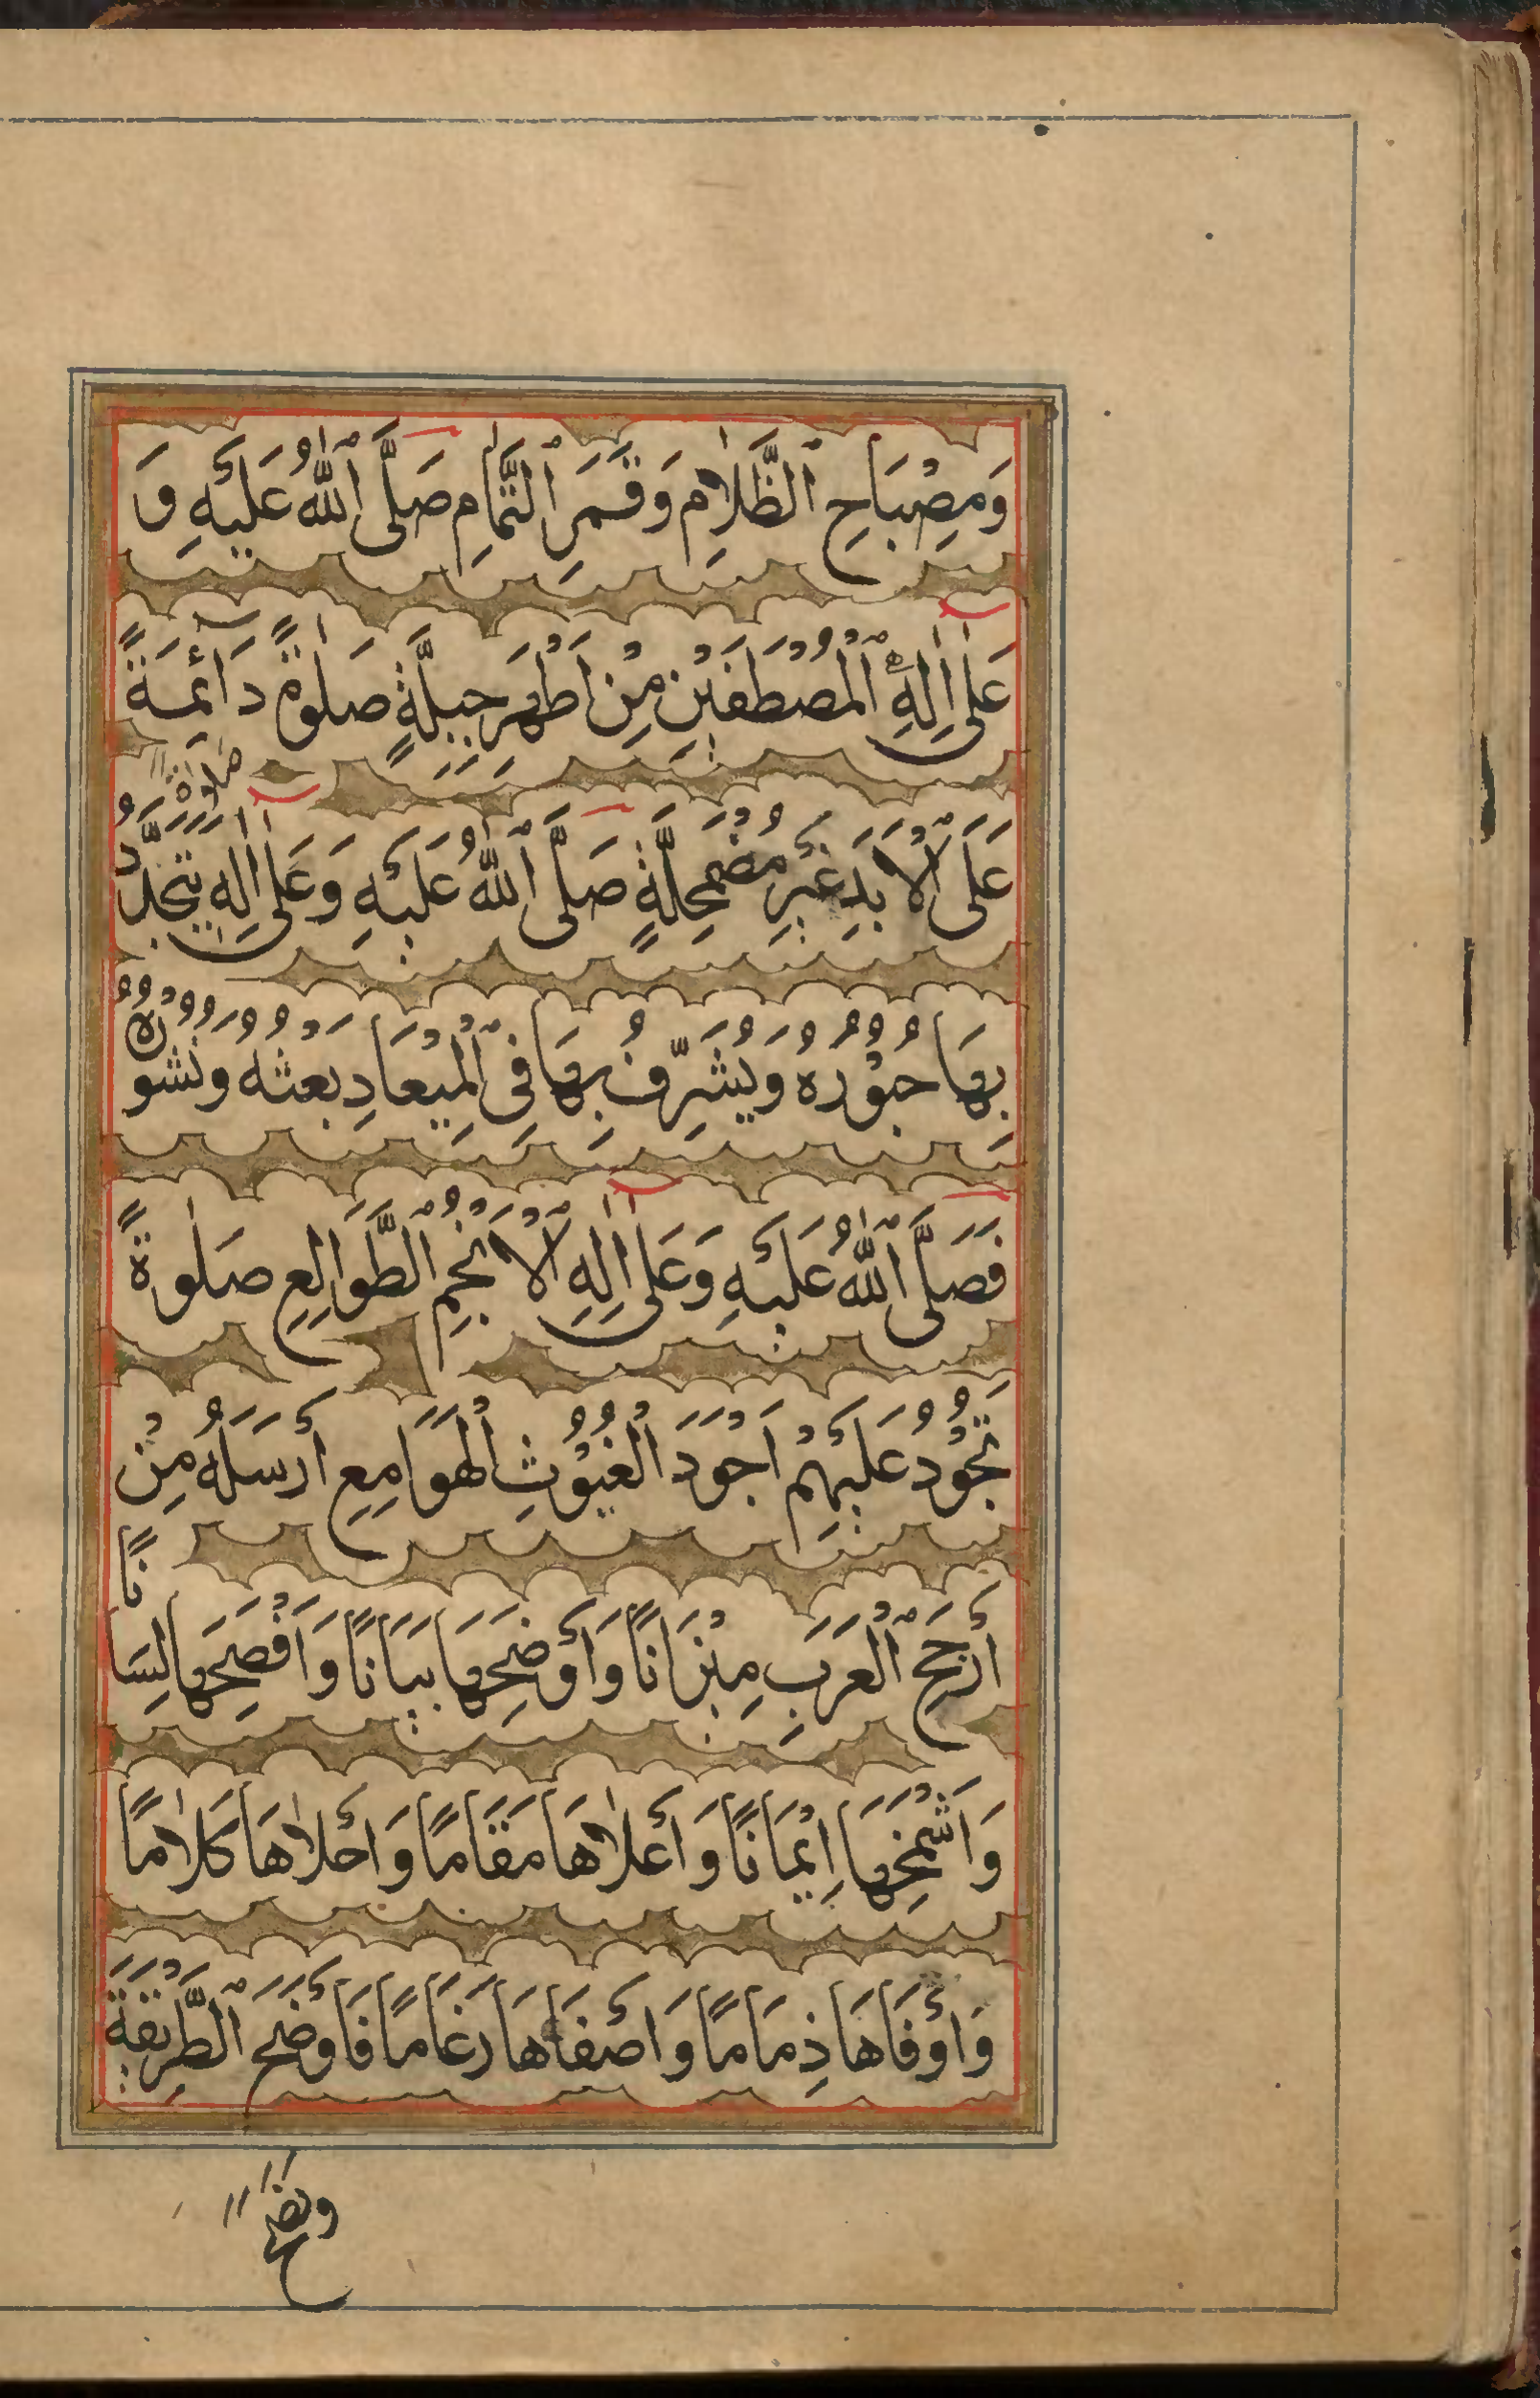 وَمِصْبَاحِ ٱلظَّلٰامِ وَقَمَرِ ٱلتَّمٰامِ صَلَّى ٱللّٰهُ عَلَيْهِ وَ
عَلىٰ اٰلِهِ ٱلْمُصْطَفَيْنَ مِنْ اَطْهَرِ جِبِلَّةٍ صَلٰوةً دَائِمَةً
عَلَى ٱلْاَبَدِ غَيْرَ مُضْمَحِلَّةٍ صَلَّى ٱللّٰهُ عَلَيْهِ وَعَلىٰ اٰلِهِ صَلٰوةً يَتَجَدَّدُ
بِهَا حُبُوْرُهُ وَيُشَرَّفُ بِهَا فِى ٱلْمِيْعَادِ بَعْثُهُ وَنُشُوْرُهُ
فَصَلَّى ٱللّٰهُ عَلَيْهِ وَعَلىٰ اٰلِهِ ٱلْاَنْجُمِ ٱلطَّوَالِعِ صَلٰوةً
تَجُوْدُ عَلَيْهِمْ اَجْوَدَ الْغُيُوْثِ الْهَوَامِعِ أَرْسَلَهُ مِنْ
أَرْجَحِ ٱلْعَرَبِ مِيْزَانًا وَأَوْضَحِهَا بَيَانًا وَاَفْصَحِهَا لِسَانًا
وَاَشْمَخِهَا اِيْمَانًا وَأَعْلٰاهَا مَقَامًا وَاَحْلٰاهَا كَلٰامًا
وَاَوْفَاهَا ذِمَامًا وَاَصْفَاهَا رَغَامًا فَاَوْضَحَ ٱلطَّرِيْقَةَ
ونصح